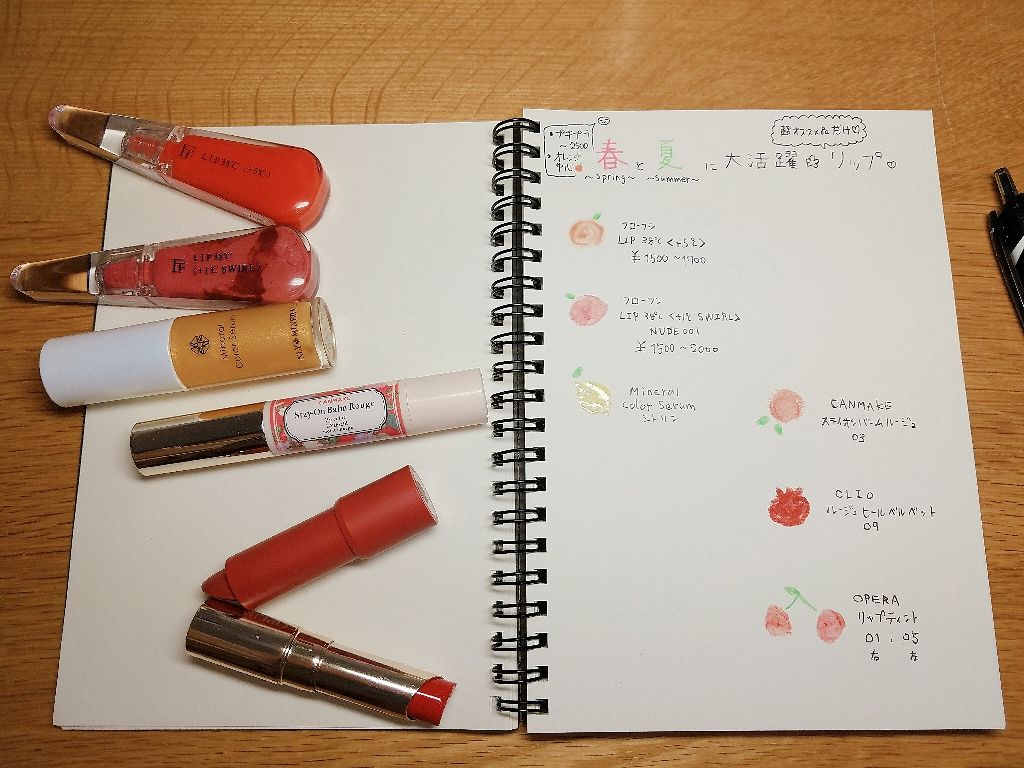 LIP38℃ (+5℃)
LIP38℃
(+1℃ SWIRL)
Mineral
Color Serum
CANMAKE
Stay-On Balm Rouge
・プチプラ
~2500
・オレンジ
超オススメなだけ♡
春と夏に大活躍なリップ♡
~spring~ ~summer~
フローフシ
LIP 38℃ <+5℃>
¥1500~1700
フローフシ
LIP 38℃ <+1℃ SWIRL>
NUDE 001
¥1500~2000
Mineral
Color Serum
シトリン
CANMAKE
ステイオンバームルージュ
03
CLIO
ルージュヒールベルベット
09
OPERA
リップティント
01 . 05
右 左